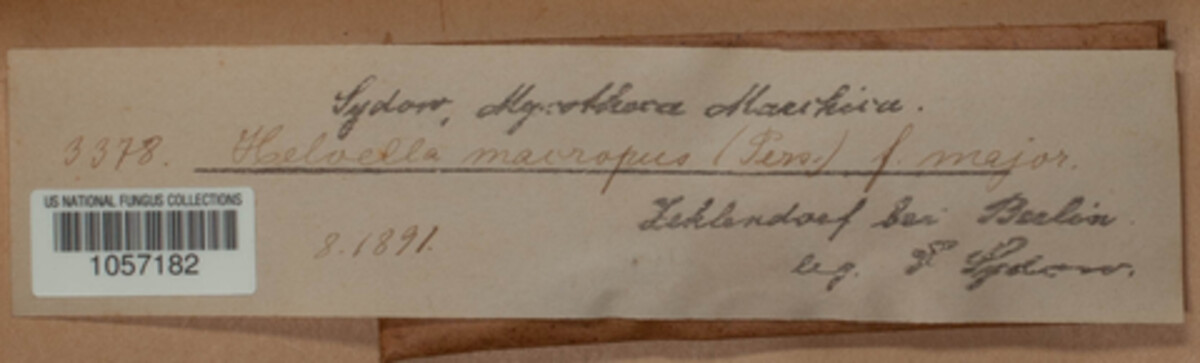 Sydow, Mycotheca Marchica.
3378. Helvella macropus (Pers.) f. major.
Zehlendorf bei Berlin
8.1891.
leg. P Sydow.
US NATIONAL FUNGUS COLLECTIONS
1057182